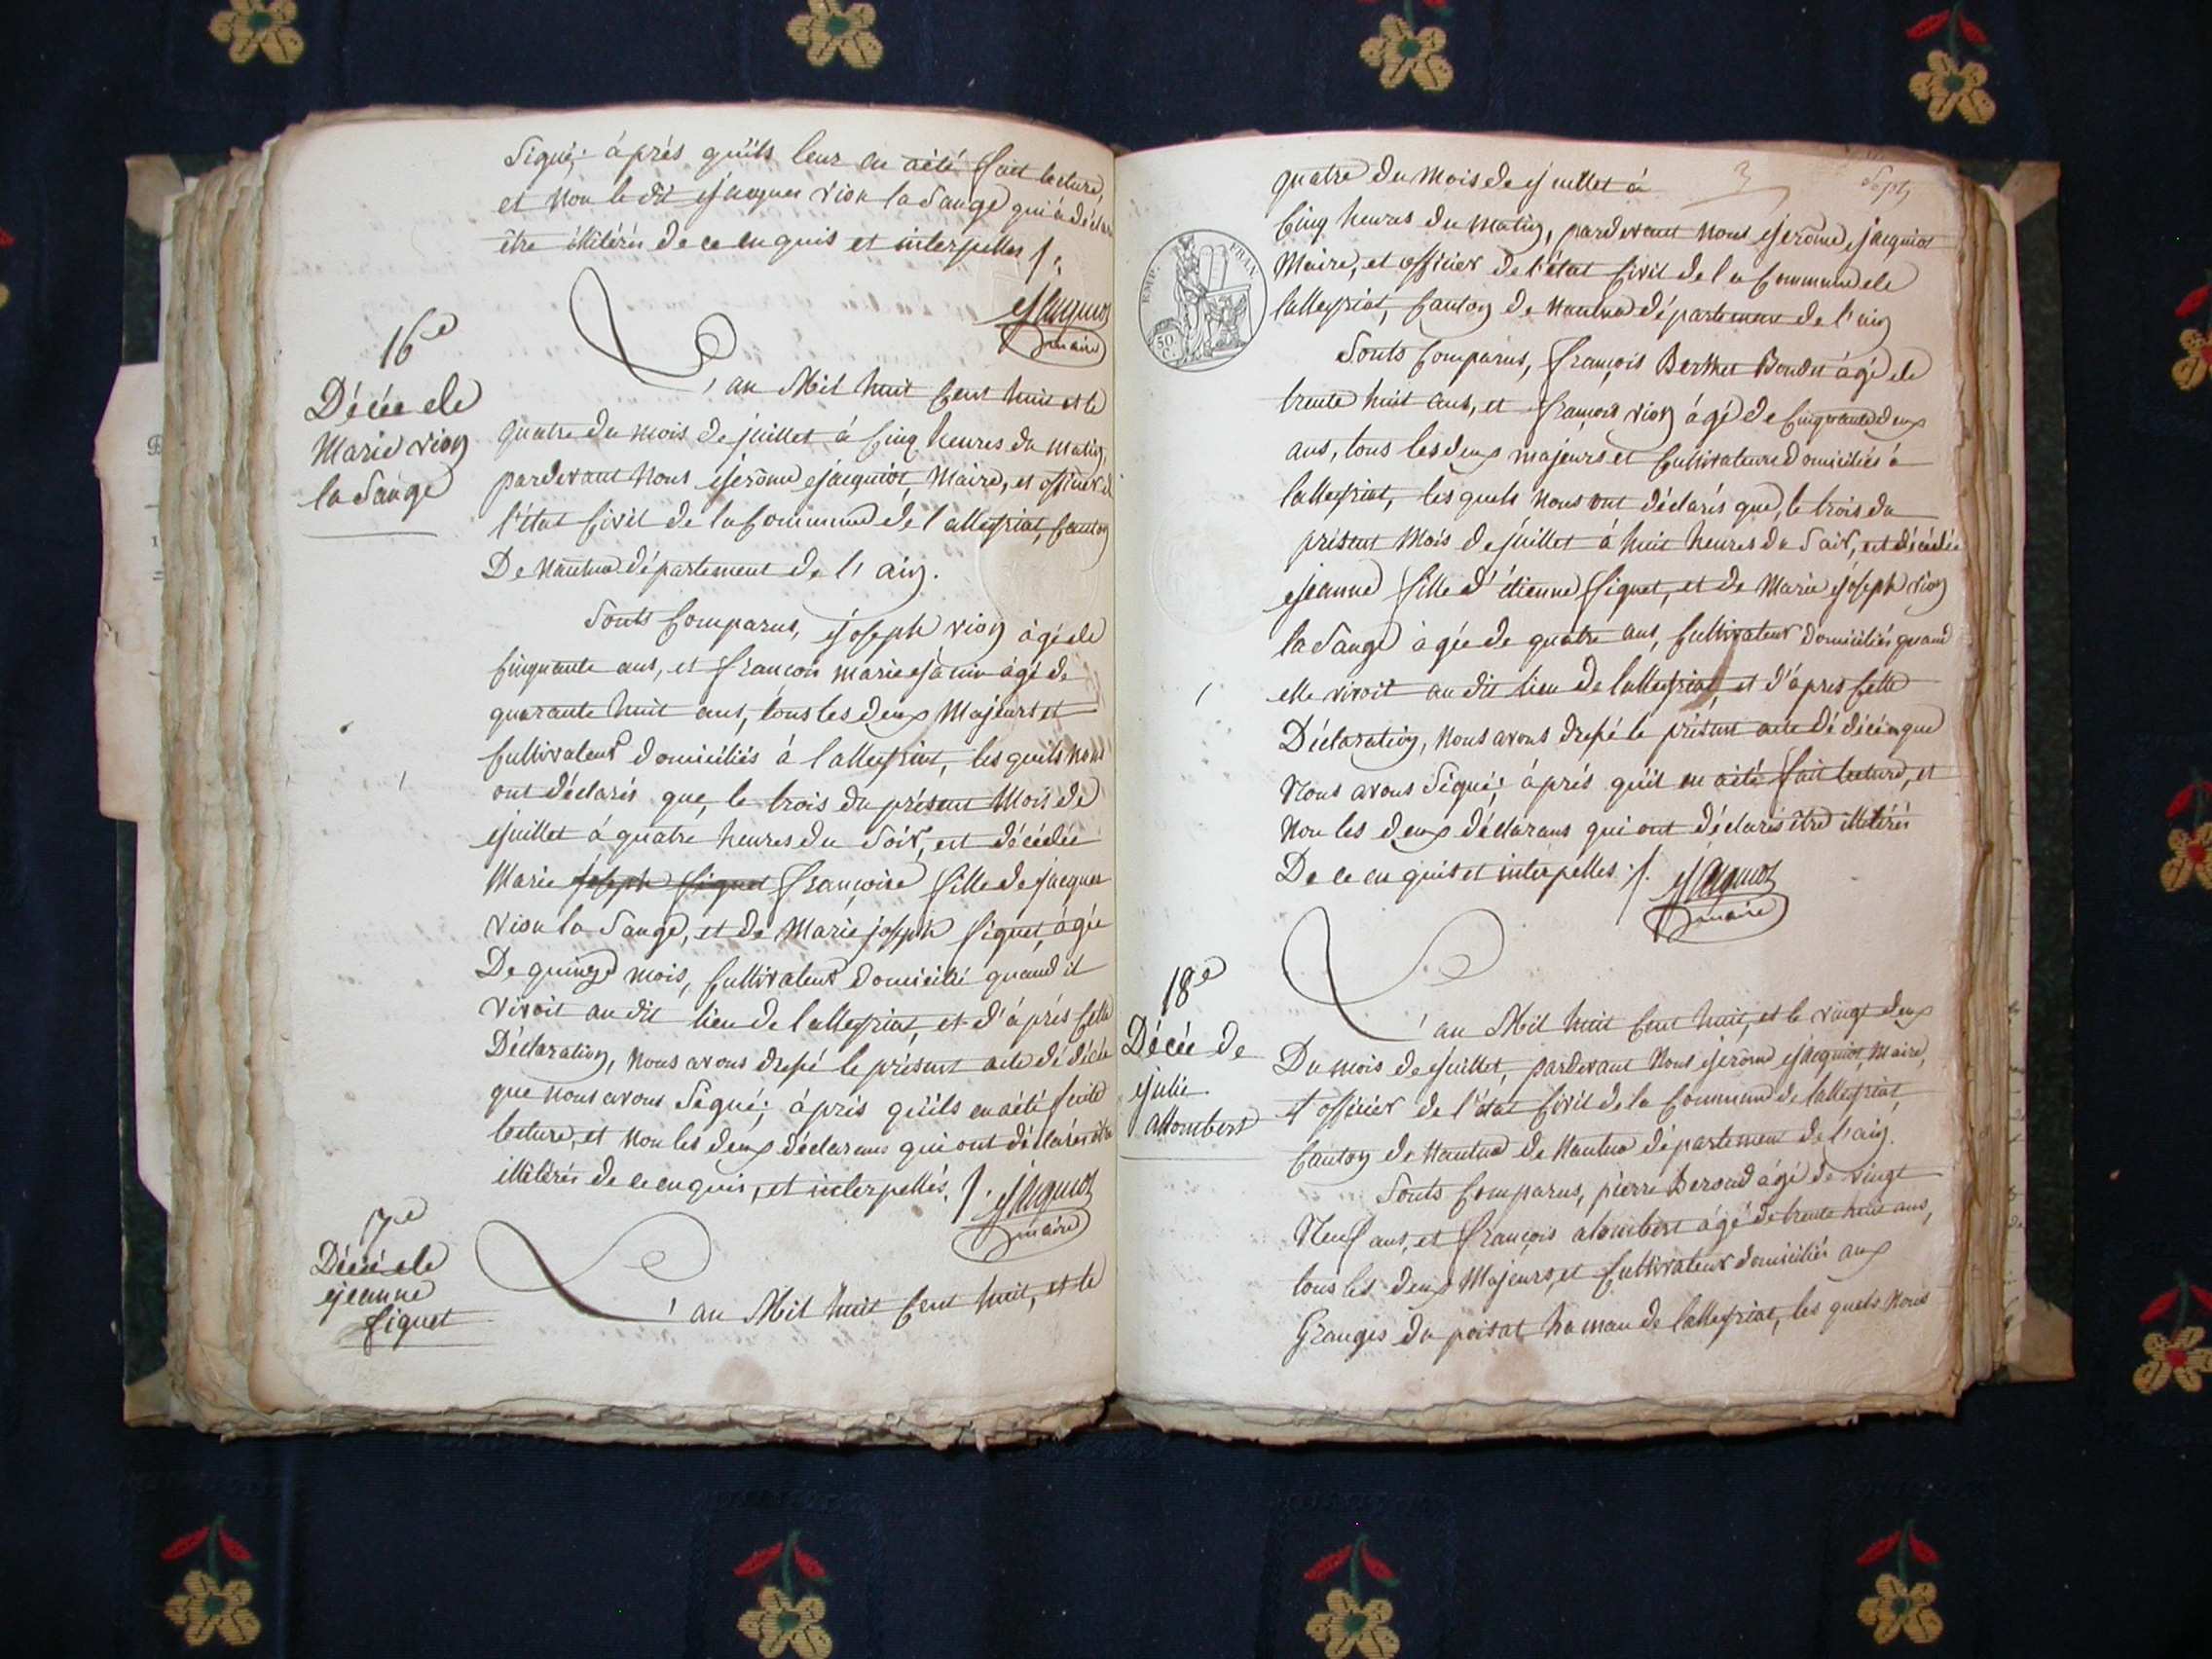 Signé; àprés qu'ils leur en aété fait lecture,
et Non le dit jacques vion la Sauge qui à déclaré
être illitérés de ce enquis et interpellés
Jacquiot
maire
16e
Décée de
Marie vion
la Sauge
L'an Mil huit Cent huit et le
quatre du mois de juillet à Cinq heures du matin,
pardevant Nous jerôme jacquiot, Maire, et officier de
l'état Civil de la Commune de lalleyriat, Canton
De Nantua département de l'ain.
Sonts Comparus, joseph vion àgé de
Cinquante ans, et françois marie
àgé de
quarante huit ans, tous les deux Majeurs et
Cultivateurs domiciliés à lalleyriat, les quels nous
ont déclarés que, le trois du présent Mois de
juillet à quatre heures du Soir, est décédée
Marie joseph figuet françoise fille de jacques
vion la Sauge, et de Marie joseph figuet, àgée
De quinze mois, Cultivateur domicilié quand il
vivoit au dit lieu de lalleyriat, et d'àprés Cette
Déclaration, Nous avons dressé le présent acte dé décée
que nous avons Signé; àprés qu'ils en aété faite
lecture, et Non les deux déclarans qui ont déclarés être
illitérés de ce enquis, et interpellés.
Jacquiot
maire
7e
Décée de
jeanne
figuet
L'an Mil huit Cent huit, et le
3
Sept
quatre du Mois de juillet à
EMP. FRAN.
50 C.
Cinq heures du matin, pardevant Nous jerôme jacquiot
Maire, et officier de l'état Civil de la Commune de
lalleyriat, Canton de Nantua département de l'ain
Sonts Comparus, françois Berthet Bondet àgé de
trente huit ans, et françois vion àgé de Cinquante deux
ans, tous les deux majeurs et Cultivateurs domiciliés à
lalleyriat, les quels nous ont déclarés que, le trois du
présent Mois de juillet à huit heures du Soir, est décédée
jeanne fille d'étienne figuet, et de Marie joseph vion
la Sauge àgée de quatre ans, Cultivateur domiciliés quand
elle vivoit au dit lieu de lalleyriat, et d'àprés Cette
Déclaration, Nous avons dressé le présent acte dé décée que
Nous avons Signé; àprés qu'il en aété fait lecture, et
Non les deux déclarans qui ont déclarés être illitérés
De ce en quis et interpellés.
Jacquiot
maire
18e
Décée de
julie
allombert
L'an Mil huit Cent huit, et le vingt deux
Du mois de juillet, pardevant Nous jerôme jacquiot, Maire,
et officier de l'état Civil de la Commune de lalleyriat,
Canton de Nantua de Nantua département de l'ain.
Sonts Comparus, pierre Beroud àgé de vingt
Neuf ans, et françois alombert àgé de trente huit ans,
tous les deux Majeurs, et Cultivateur domiciliés aux
Granges du poisat hamau de lalleyriat, les quels Nous